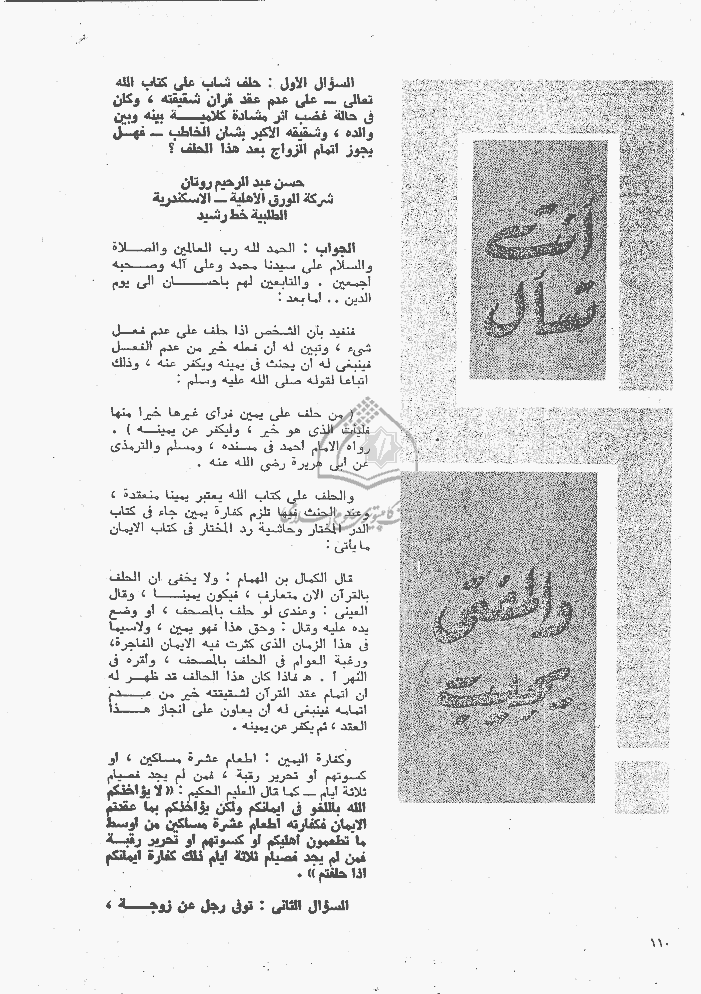 أنت
تسأل
والمفتى
يجيب
السؤال الاول : حلف شاب على كتاب الله
تعالى — على عدم عقد قران شقيقته ، وكان
فى حالة غضب اثر مشادة كلاميـــة بينه وبين
والده ، وشقيقه الاكبر بشأن الخاطب — فهــل
يجوز اتمام الزواج بعد هذا الحلف ؟
حسن عبد الرحيم روتان
شركة الورق الاهلية — الاسكندرية
الطلبية خط رشيد
الجواب : الحمد لله رب العالمين والصــلاة
والسلام على سيدنا محمد وعلى آله وصــحبه
اجمعين . والتابعين لهم باحســـان الى يوم
الدين . . اما بعد :
فنفيد بأن الشخص اذا حلف على عدم فعــل
شىء ، وتبين له أن فعله خير من عدم الفعــل
فينبغى له أن يحنث فى يمينه ويكفر عنه ، وذلك
اتباعا لقوله صلى الله عليه وسلم :
( من حلف على يمين فرأى غيرها خيرا منها
فليأت الذى هو خير ، وليكفر عن يمينــه ) .
رواه الامام أحمد فى مسنده ، ومسلم والترمذى
عن ابى هريرة رضى الله عنه .
والحلف على كتاب الله يعتبر يمينا منعقدة ،
وعند الحنث فيها تلزم كفارة يمين جاء فى كتاب
الدر المختار وحاشية رد المختار فى كتاب الايمان
ما يأتى :
قال الكمال بن الهمام : ولا يخفى ان الحلف
بالقرآن الان متعارف ، فيكون يمينـــا ، وقال
العينى : وعندى لو حلف بالمصحف ، أو وضع
يده عليه وقال : وحق هذا فهو يمين ، ولاسيما
فى هذا الزمان الذى كثرت فيه الايمان الفاجرة،
ورغبة العوام فى الحلف بالمصحف ، وأقره فى
النهر أ . هـ فاذا كان هذا الحالف قد ظهــر له
ان اتمام عقد القرآن لشقيقته خير من عــدم
اتمامه فينبغى له أن يعاون على انجاز هــذا
العقد ، ثم يكفر عن يمينه .
وكفارة اليمين : اطعام عشرة مساكين ، أو
كسوتهم أو تحرير رقبة ، فمن لم يجد فصيام
ثلاثة أيام — كما قال العليم الحكيم : « لا يؤاخذكم
الله باللغو فى ايمانكم ولكن يؤاخذكم بما عقدتم
الايمان فكفارته اطعام عشرة مساكين من اوسط
ما تطعمون أهليكم او كسوتهم أو تحرير رقبــة
فمن لم يجد فصيام ثلاثة أيام ذلك كفارة ايمانكم
اذا حلفتم » .
السؤال الثانى : توفى رجل عن زوجـــة ،
١١٠